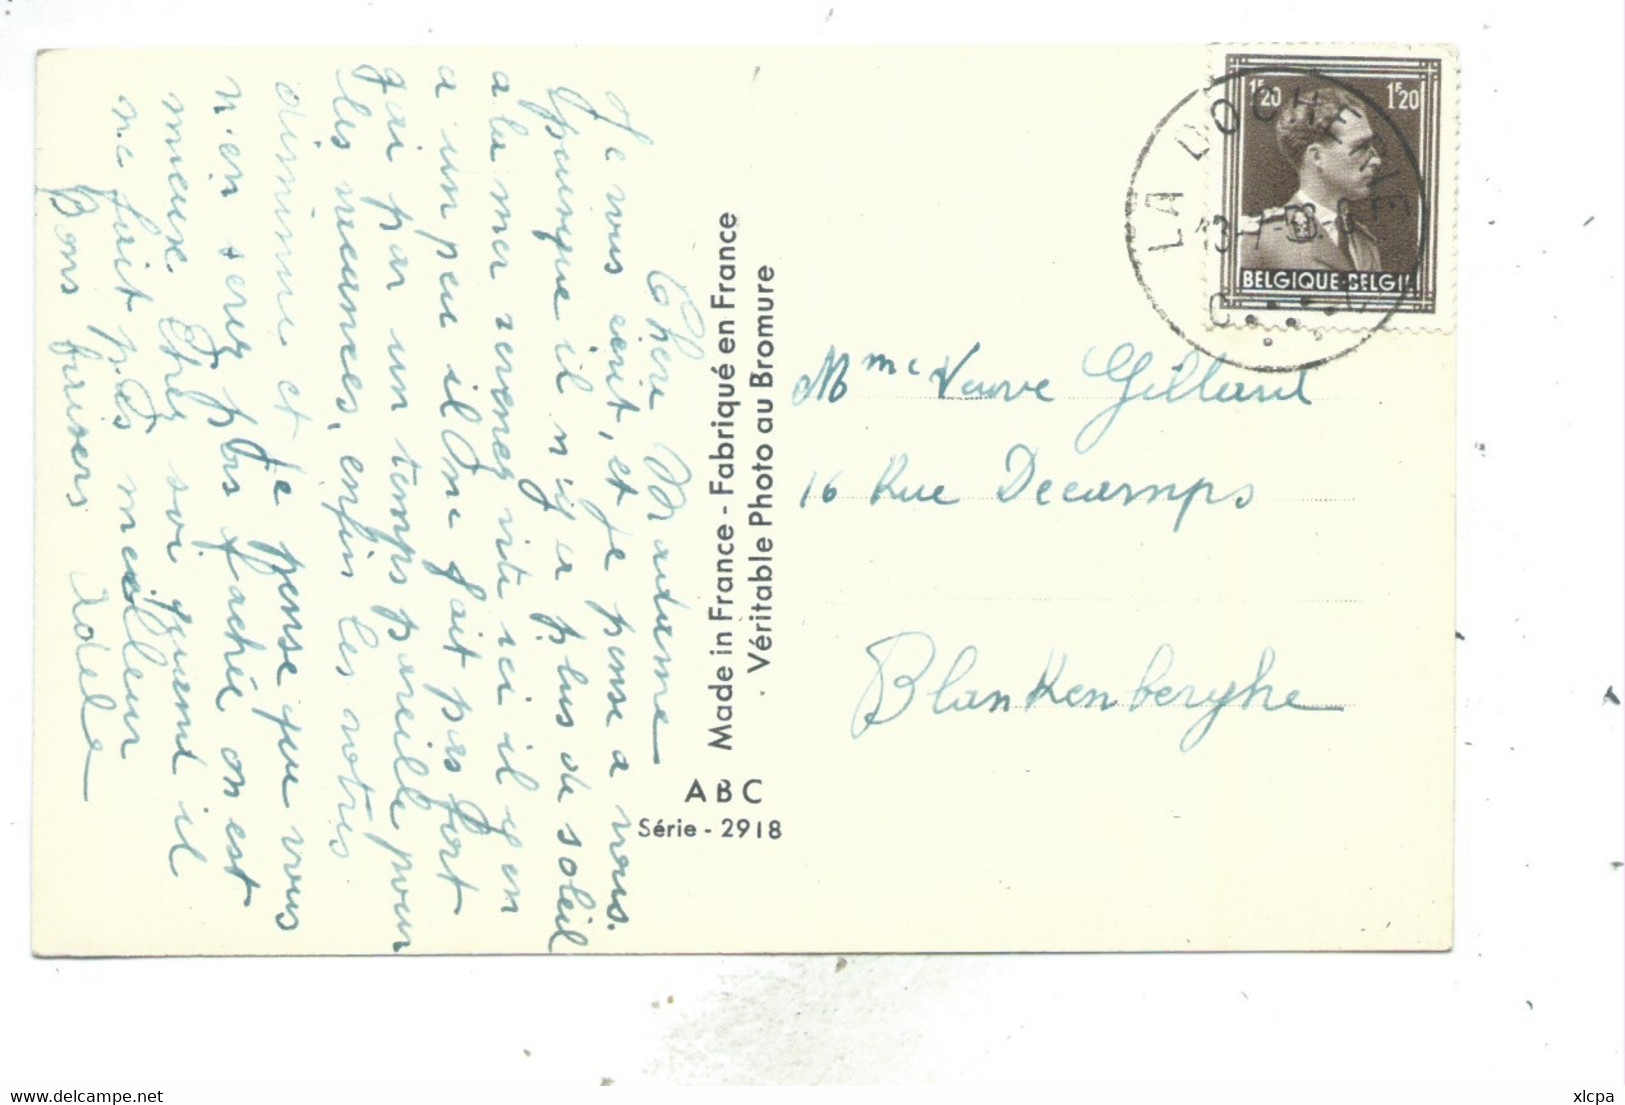 Chere Madame
Je vous écrit, et je pense a nous.
pourque il n'y a plus de soleil
a la mer revenez vite ici il y en
a un peu il ne fait pas fort
gai par un temps pareille pour
les vacances, enfin les notres
diminue et je pense que vous
n'en serez pas fachée on est
mieux chez soi quand il
ne fait pas meilleur
Bons baisers
Made in France - Fabriqué en France
Véritable Photo au Bromure
ABC
Série - 2918
1F20 1F20
BELGIQUE-BELGI
LA DOCHERIE
13-7-53
Mme Veuve Gillard
16 Rue Decamps
Blankenberghe
delcampe.net
xlcpa